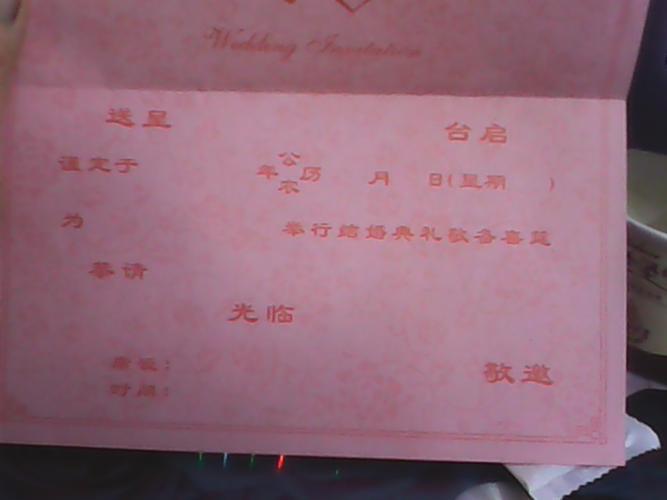 Wedding Invitation
送呈 台启
谨定于 年 公历 农 月 日(星期 )
为 举行结婚典礼敬备喜筵
恭请
光临
席设:
时间:
敬邀